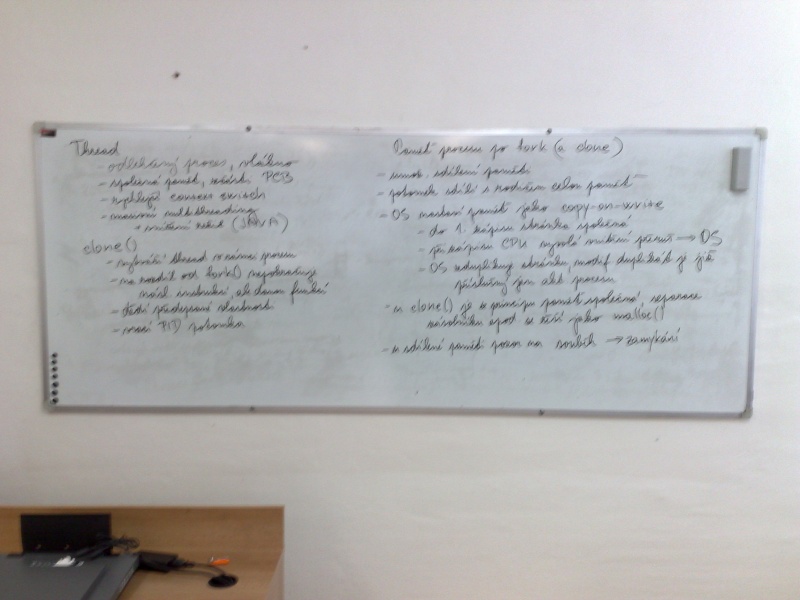 Thread
- odlehčený proces, vlákno
- společná paměť, součásti PCB
- rychlejší context switch
- masivní multithreading
(JAVA)
clone()
- vytváří thread v rámci procesu
- na rozdíl od fork() nepokračuje
násl. instrukcí, ale danou funkcí
- dědí předepsané vlastnosti
- vrací PID potomka
Paměť procesu po fork (a clone)
- umož. sdílení paměti
- potomek sdílí s rodičem celou paměť
- OS nastaví paměť jako copy-on-write
- do 1. zápisu stránka společná
- při zápisu CPU vyvolá vnitřní přeruš → OS
- OS zduplikuje stránku, modif. duplikát je již
příslušný jen akt. procesu
- u clone() je v principu paměť společná, separace
zásobníku apod. se řeší jako malloc()
- u sdílení paměti pozor na souběh → zamykání